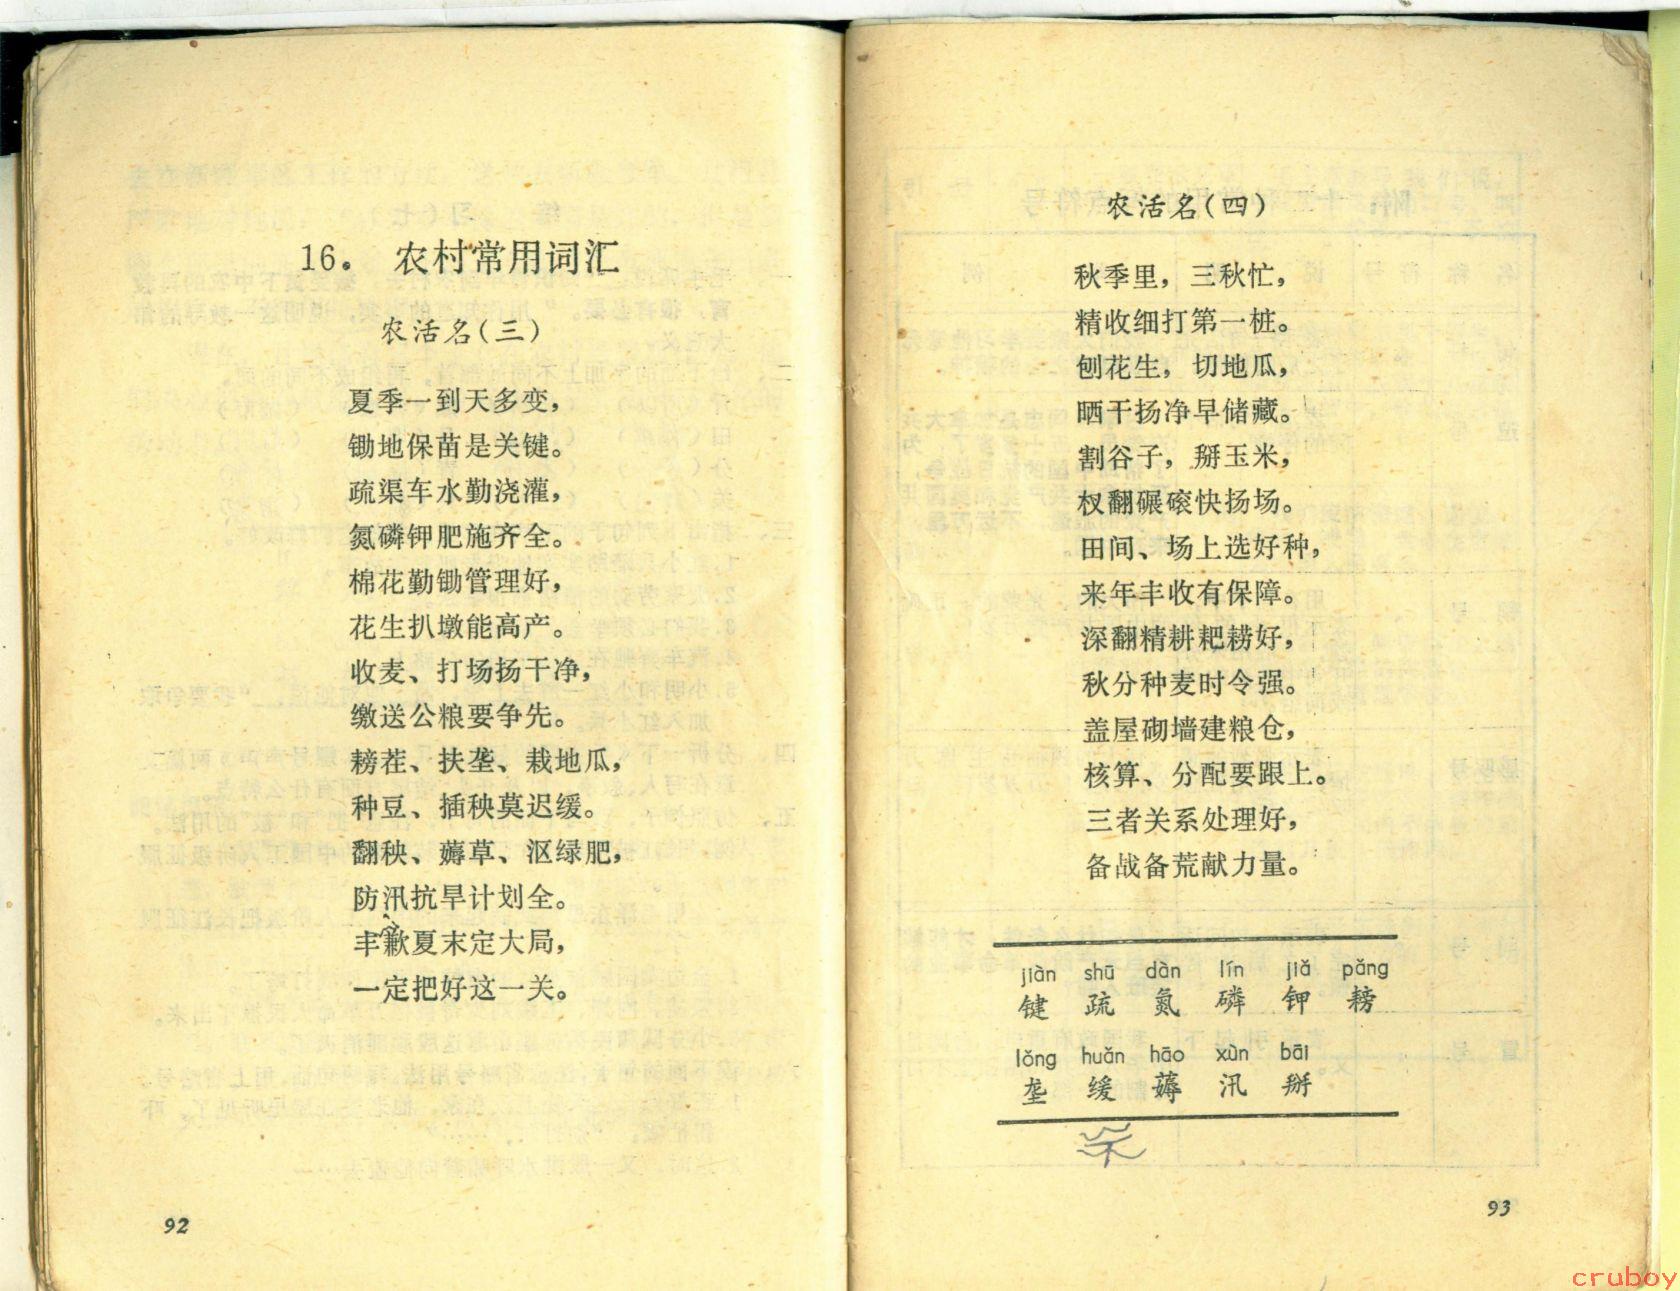 16. 农村常用词汇
农活名(三)
夏季一到天多变,
锄地保苗是关键。
疏渠车水勤浇灌,
氮磷钾肥施齐全。
棉花勤锄管理好,
花生扒墩能高产。
收麦、打场扬干净,
缴送公粮要争先。
耪茬、扶垄、栽地瓜,
种豆、插秧莫迟缓。
翻秧、薅草、沤绿肥,
防汛抗旱计划全。
丰歉夏末定大局,
一定把好这一关。
92
农活名(四)
秋季里,三秋忙,
精收细打第一桩。
刨花生,切地瓜,
晒干扬净早储藏。
割谷子,掰玉米,
杈翻碾磙快扬场。
田间、场上选好种,
来年丰收有保障。
深翻精耕耙耢好,
秋分种麦时令强。
盖屋砌墙建粮仓,
核算、分配要跟上。
三者关系处理好,
备战备荒献力量。
jiàn shū dàn lín jiǎ pǎng
键 疏 氮 磷 钾 耪
lǒng huǎn hāo xùn bāi
垄 缓 薅 汛 掰
93
cruboy